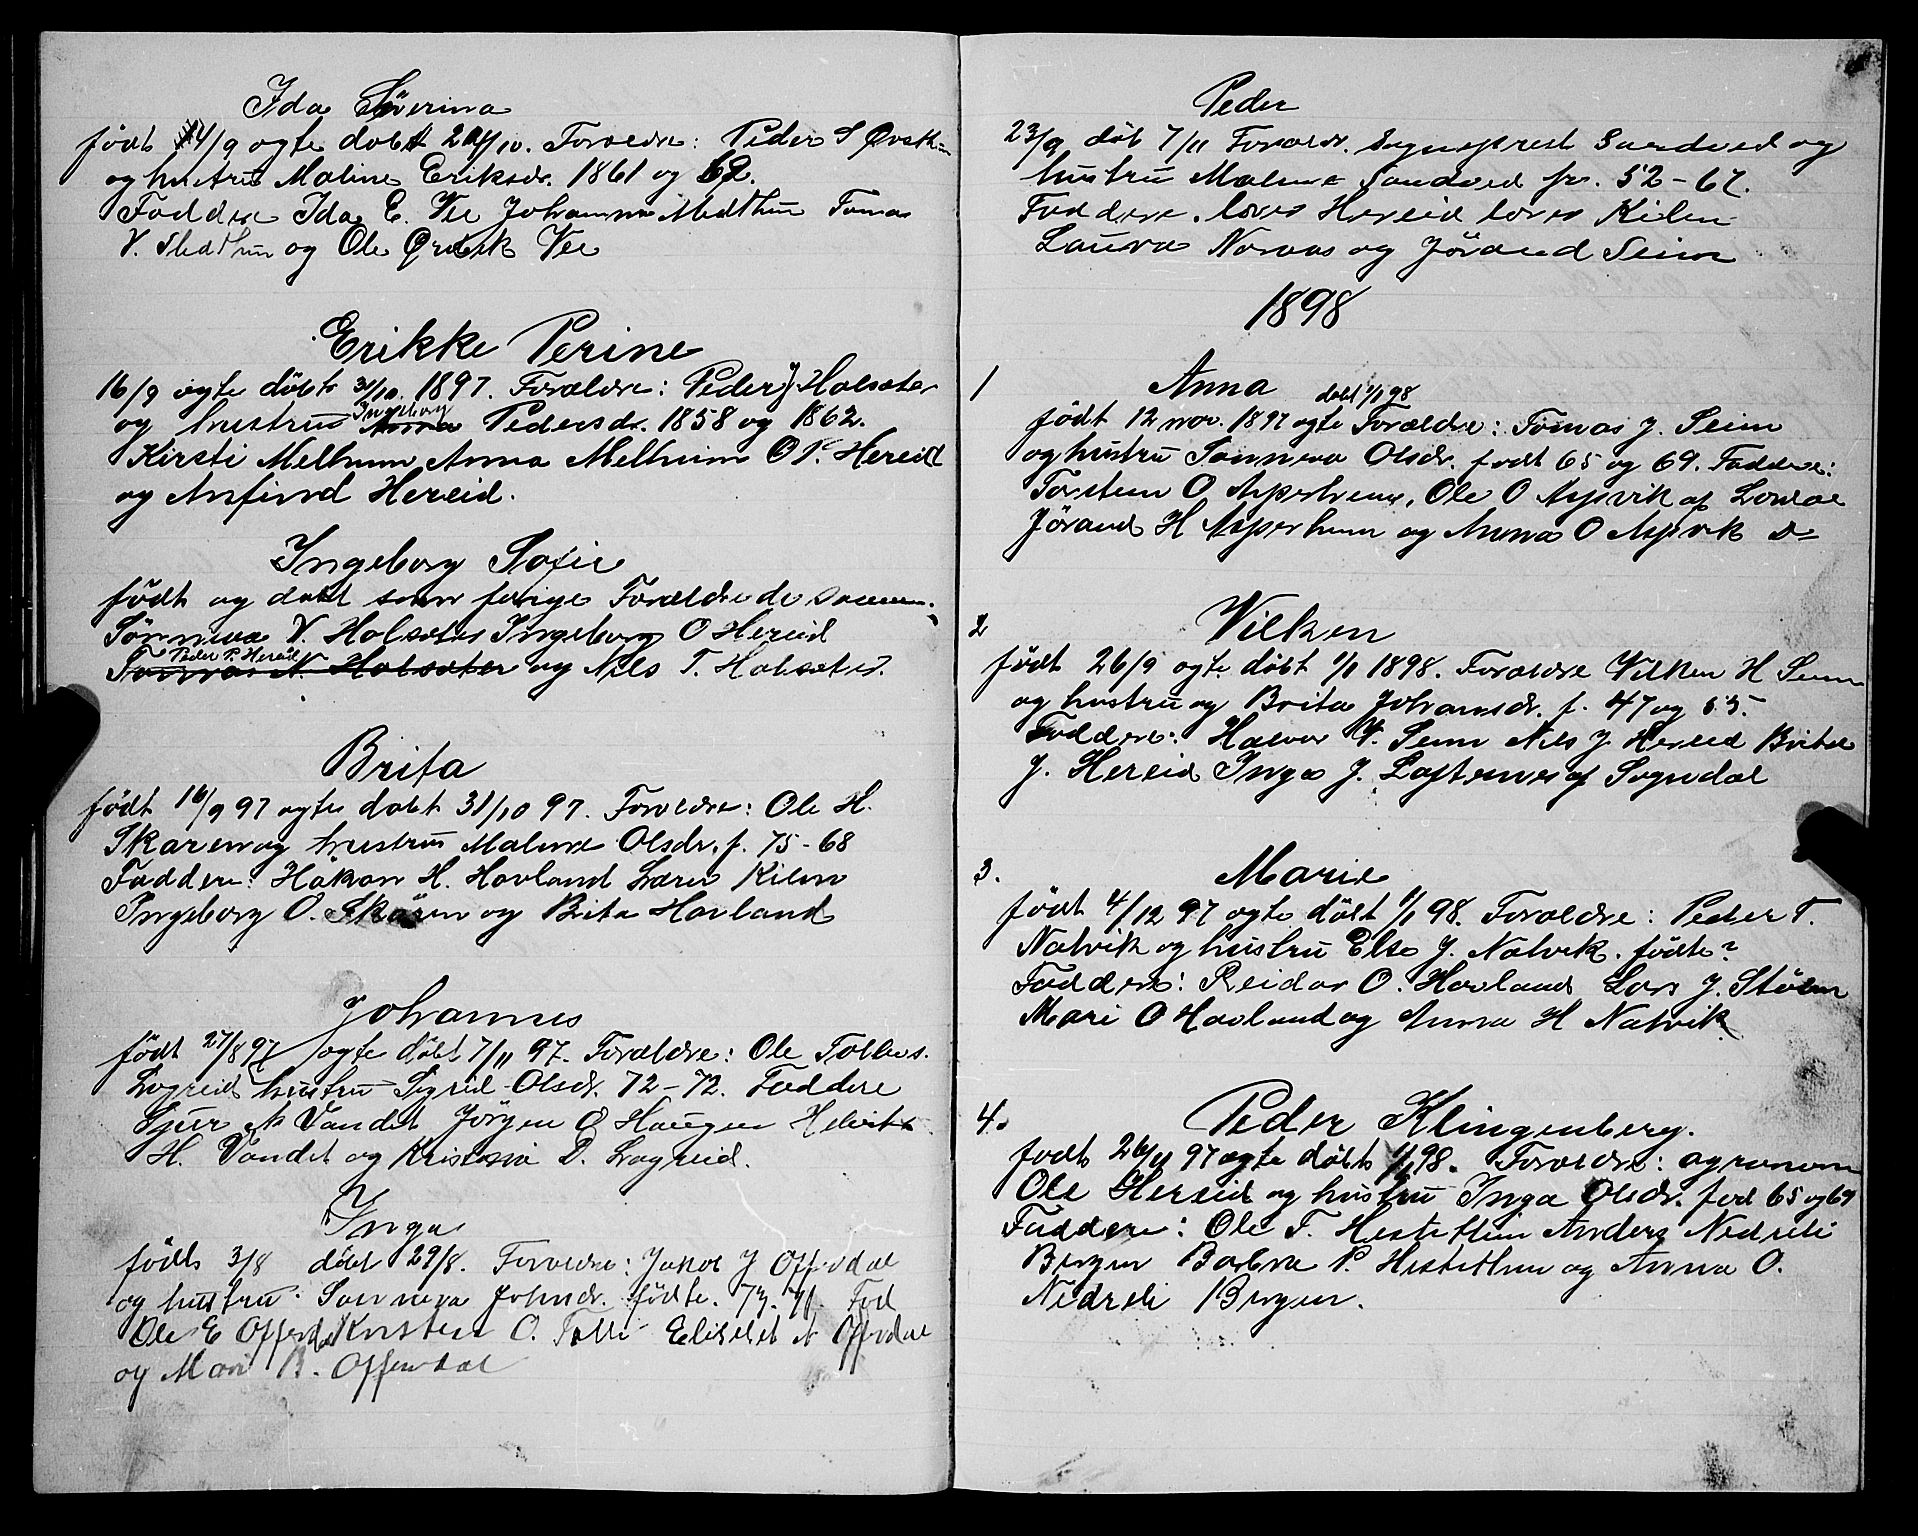 Ida Severina
født 14/9 ogte dobt 24/10. Foroldre: Peder S
og hustru Maline Eriksdr. 1861 og 62.
Foddere Ida E. Vee Johanna Melthun Tomas
V. og Ole Vee
Erikke Perine
16/9 ogte döbt 31/10. 1897. Foroeldre: Peder J Holsæter
og hustru Ingeborg Anna Pedersdr. 1858 og 1862.
Kirsti Melhum Anna Melheim O P. Hereid
og Anfind Hereid.
Ingeborg Sofie
født og dobt som forige Forældre de samme.
Sönneva V. Holsæter Ingeborg O Hereid
Peder P. Hereid
Tomas N. Holsæter og Nils T. Holsæter.
Brita
født 16/9 97 ogte dobt 31/10 97. Foroldre: Ole H.
Skaren og hustru Malene Olsdr. f. 75-68
Faddere: Håkon H. Hovland Lærer Kilen
Ingeborg O. Skåren og Brita Hovland
Johannes
født 27/8 97 ogte döbt 7/11 97. Foroldre: Ole Tollevs.
Logreid hustru Sigrid Olsdr. 72-72. Faddere
Sjur Vandet Jörgen O Haugen
H. Vandet og D. Logreid.
Inga
födt 3/8 döbt 29/8. Foroldre: Jakob J Offerdal
og hustru Sönneva Johnsdr. födte. 73. 71. Fad
Ole E Offerdal Kristen O. Elisebet N Offrdal
og Mari B. Offerdal
Peder
23/9 döbt 7/11 Foroldr. Sogneprest Sandved og
hustru Malene Sandved fr. 52-67.
Faddere. lærer Hereid lærer Kilen
Laura Norvas og Jörand Seim
1898
1 Anna
dobt 1/1 98
født 12 nov. 1897 ogte Forældre: Tomas J. Seim
og hustru Sonneva Olsdr. født 65 og 69. Faddere:
Torsten O Asperheim, Ole O Aspvik af Lærdal
Jörand H Asperheim og Anna O Aspvik Do
2 Vilken
født 26/9 ogte döbt 1/1 1898. Foroldre Vilken H Seim
og hustru og Brita Johansdr. f. 47 og 55.
Faddere: Halvor V. Seim Nils J Hereid Brita
J. Hereid Inga J. Loftesnes af Sogndal
3. Marie
født 4/12 97 ogte döbt 1/1 98. Foroldre: Peder T.
Natvik og hustru Else J. Natvik. födte?
Faddere: Reidar O. Hovland Lars J. Stöen
Mari O Hovland og Anna H Natvik
4. Peder Klingenberg.
født 26/11 97 ogte döbt 1/1 98. Foroldre: agronom
Ole Hereid og hustru Inga Olsdr. fød 65 og 69
Faddere: Ole T. Hestethun Anders Nedreli
Bergen Barbra P. Hestethun og Anna O.
Nedreli Bergen.